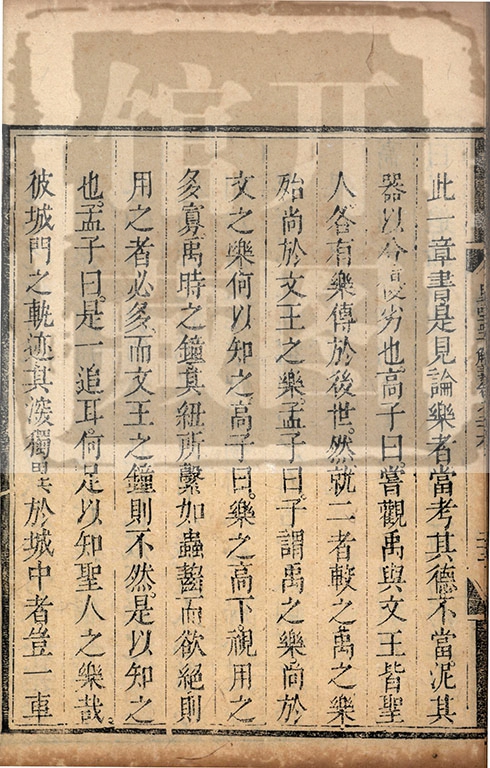 此一章書是見論樂者當考其德不當泥其
器以分優劣也高子曰嘗觀禹與文王皆聖
人各有樂傳於後世然就二者較之禹之樂
殆尚於文王之樂孟子曰子謂禹之樂尚於
文之樂何以知之高子曰樂之高下視用之
多寡禹時之鐘其紐所繫如蟲齧而欲絕則
用之者必多而文王之鐘則不然是以知之
也孟子曰是一追耳何足以知聖人之樂哉
彼城門之軌迹其深獨異於城中者豈一車